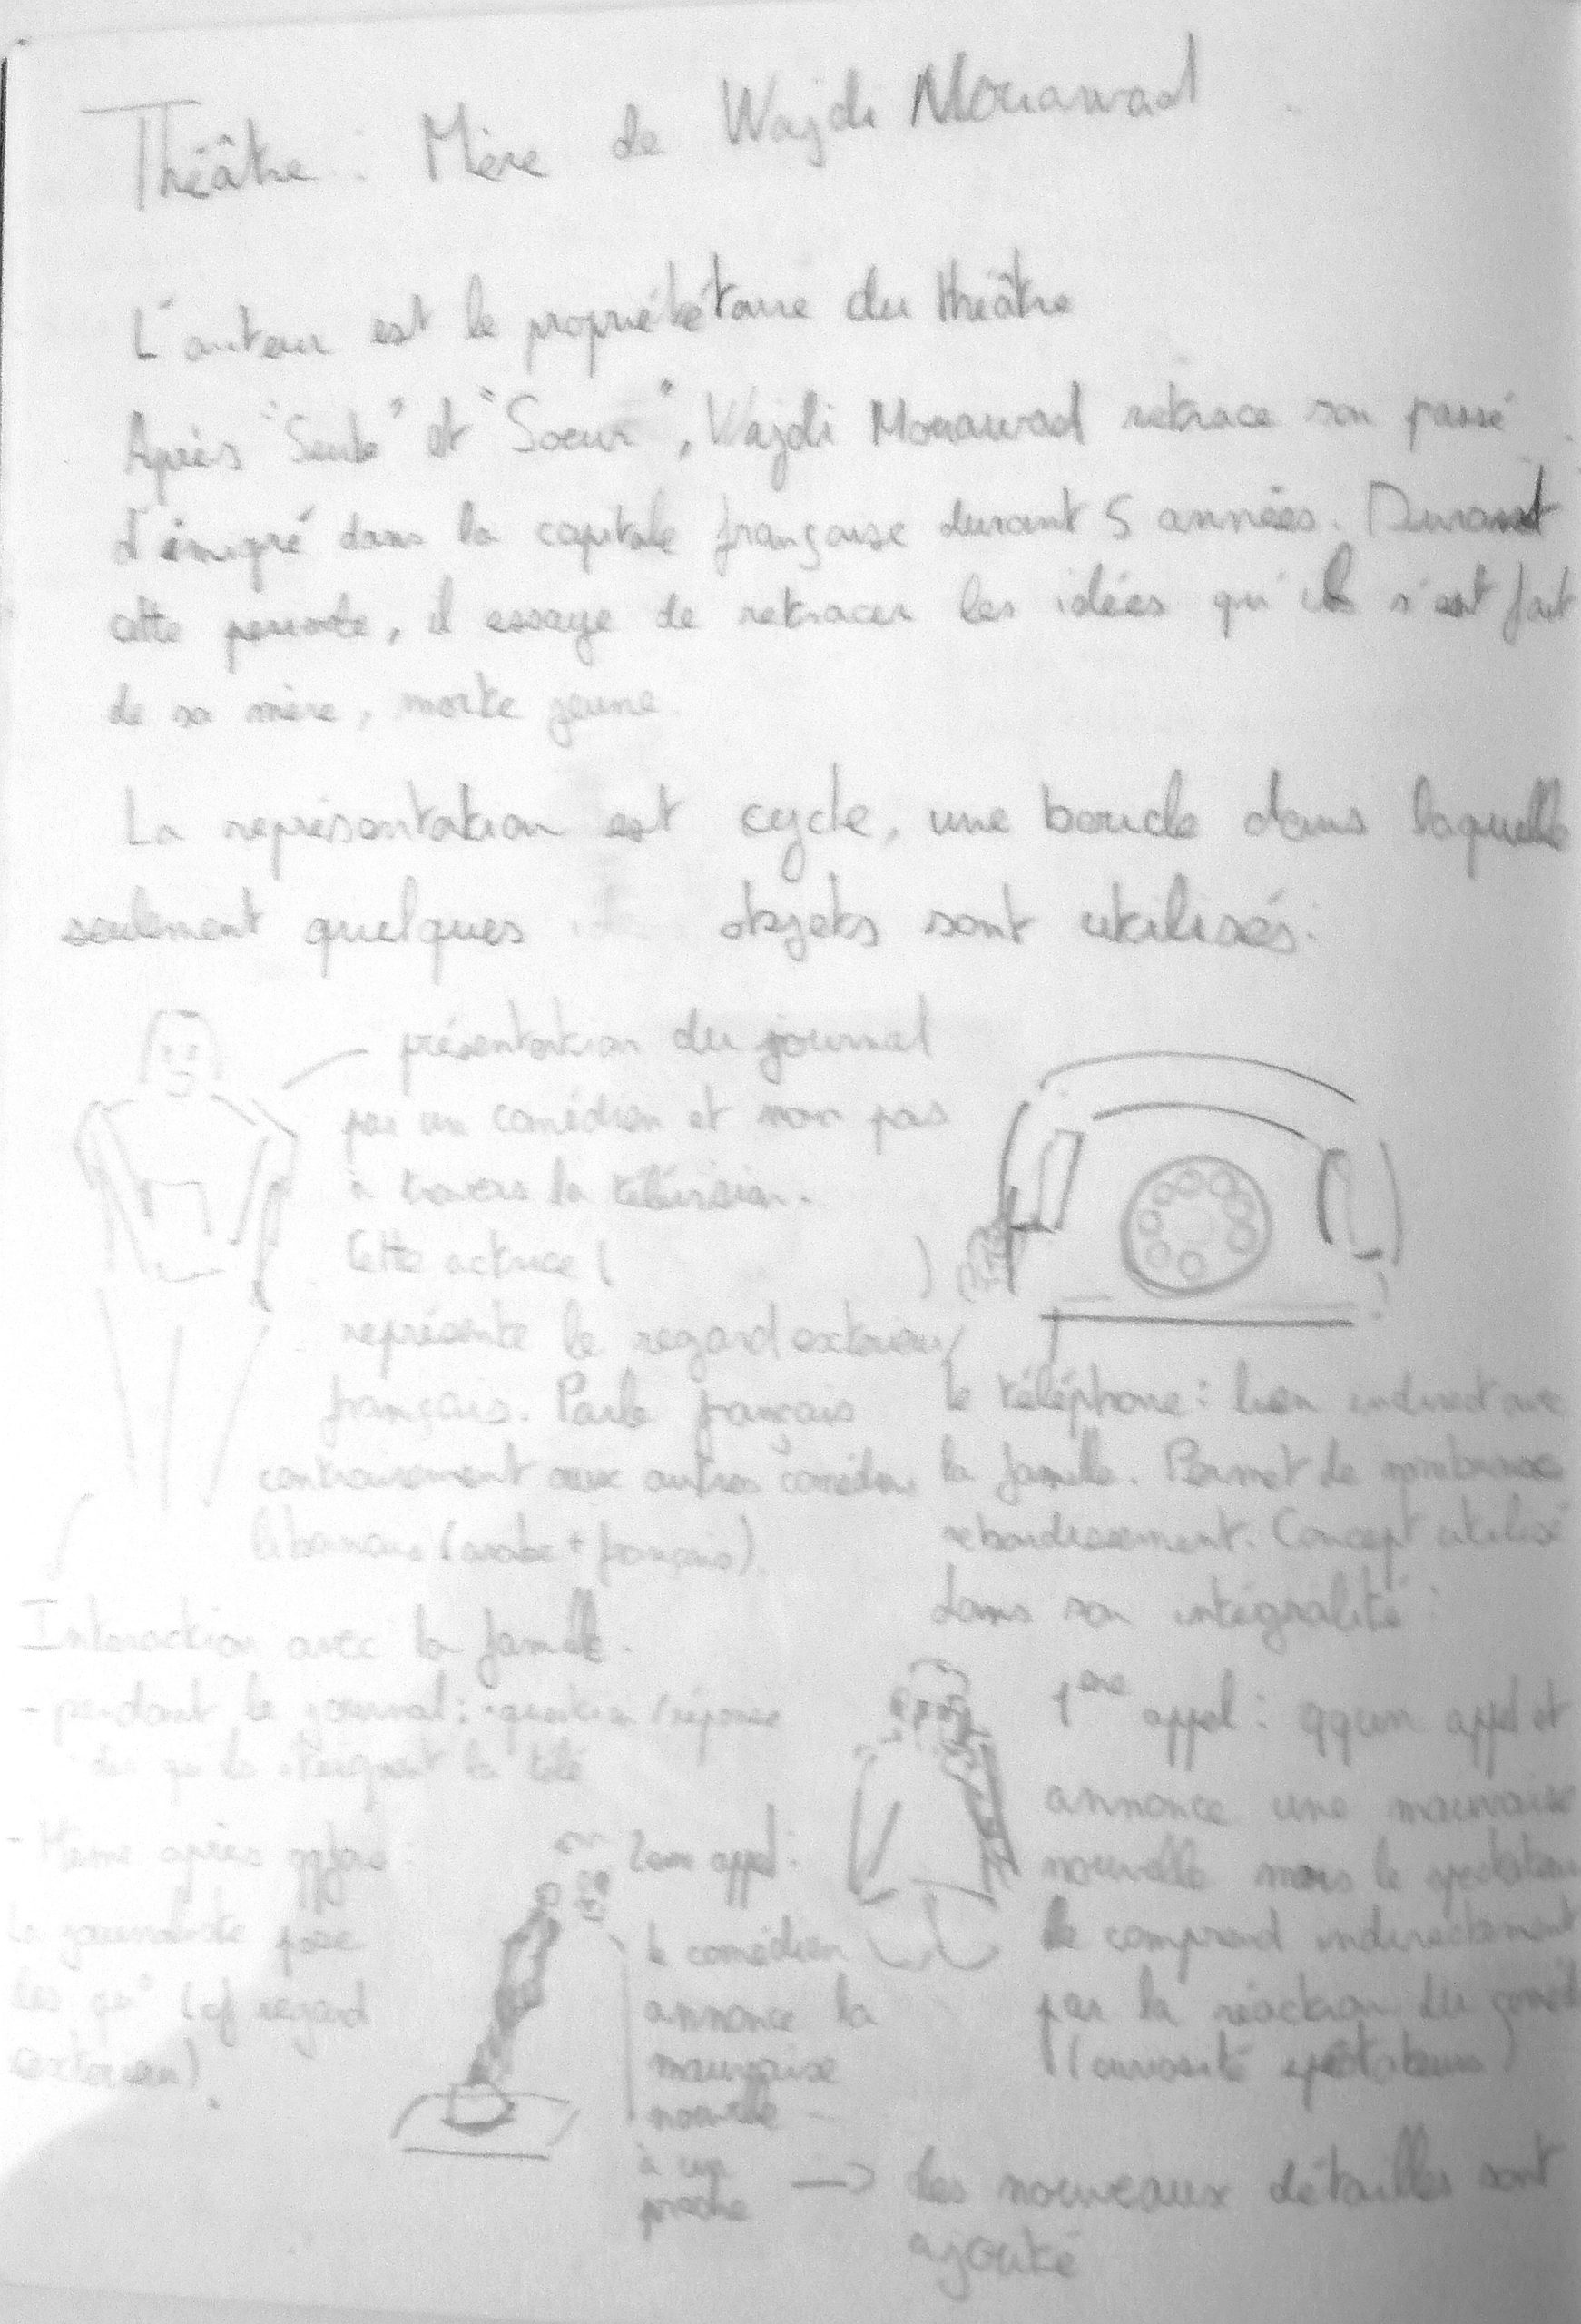 Théâtre : Mère de Wajdi Mouawad
L'auteur est le propriététaire du théâtre
Après "Seuls" et "Soeurs", Wajdi Mouawad retrace son passé
d'émigré dans la capitale française durant 5 années. Durant
cette periode, il essaye de retracer les idées qu'il s'est fait
de sa mère, morte jeune.
La représentation est cycle, une boucle dans laquelle
seulement quelques objets sont utilisés:
présentation du journal
par un comédien et non pas
à travers la télévision.
Cette actrice ( )
représente le regard exterieur/
français. Parle français
contrairement aux autres comédiens
libanais (arabe + français).
le téléphone : lien indirect avec
la famille. Permet de nombreux
rebondissement. Concept utilisé
dans son intégralité
Interaction avec la famille.
- pendant le journal : question / réponse
la télé
- Même après
la journaliste pose
des qu° (cf regard
exterieur).
2em appel :
le comédien
annonce la
mauvaise
nouvelle
à un
proche
1ere appel : qqun appel et
annonce une mauvaise
nouvelle mais le spectateur
le comprend indirectement
par la réaction du
(curiosité spectateurs)
→ des nouveaux détailles sont
ajouté